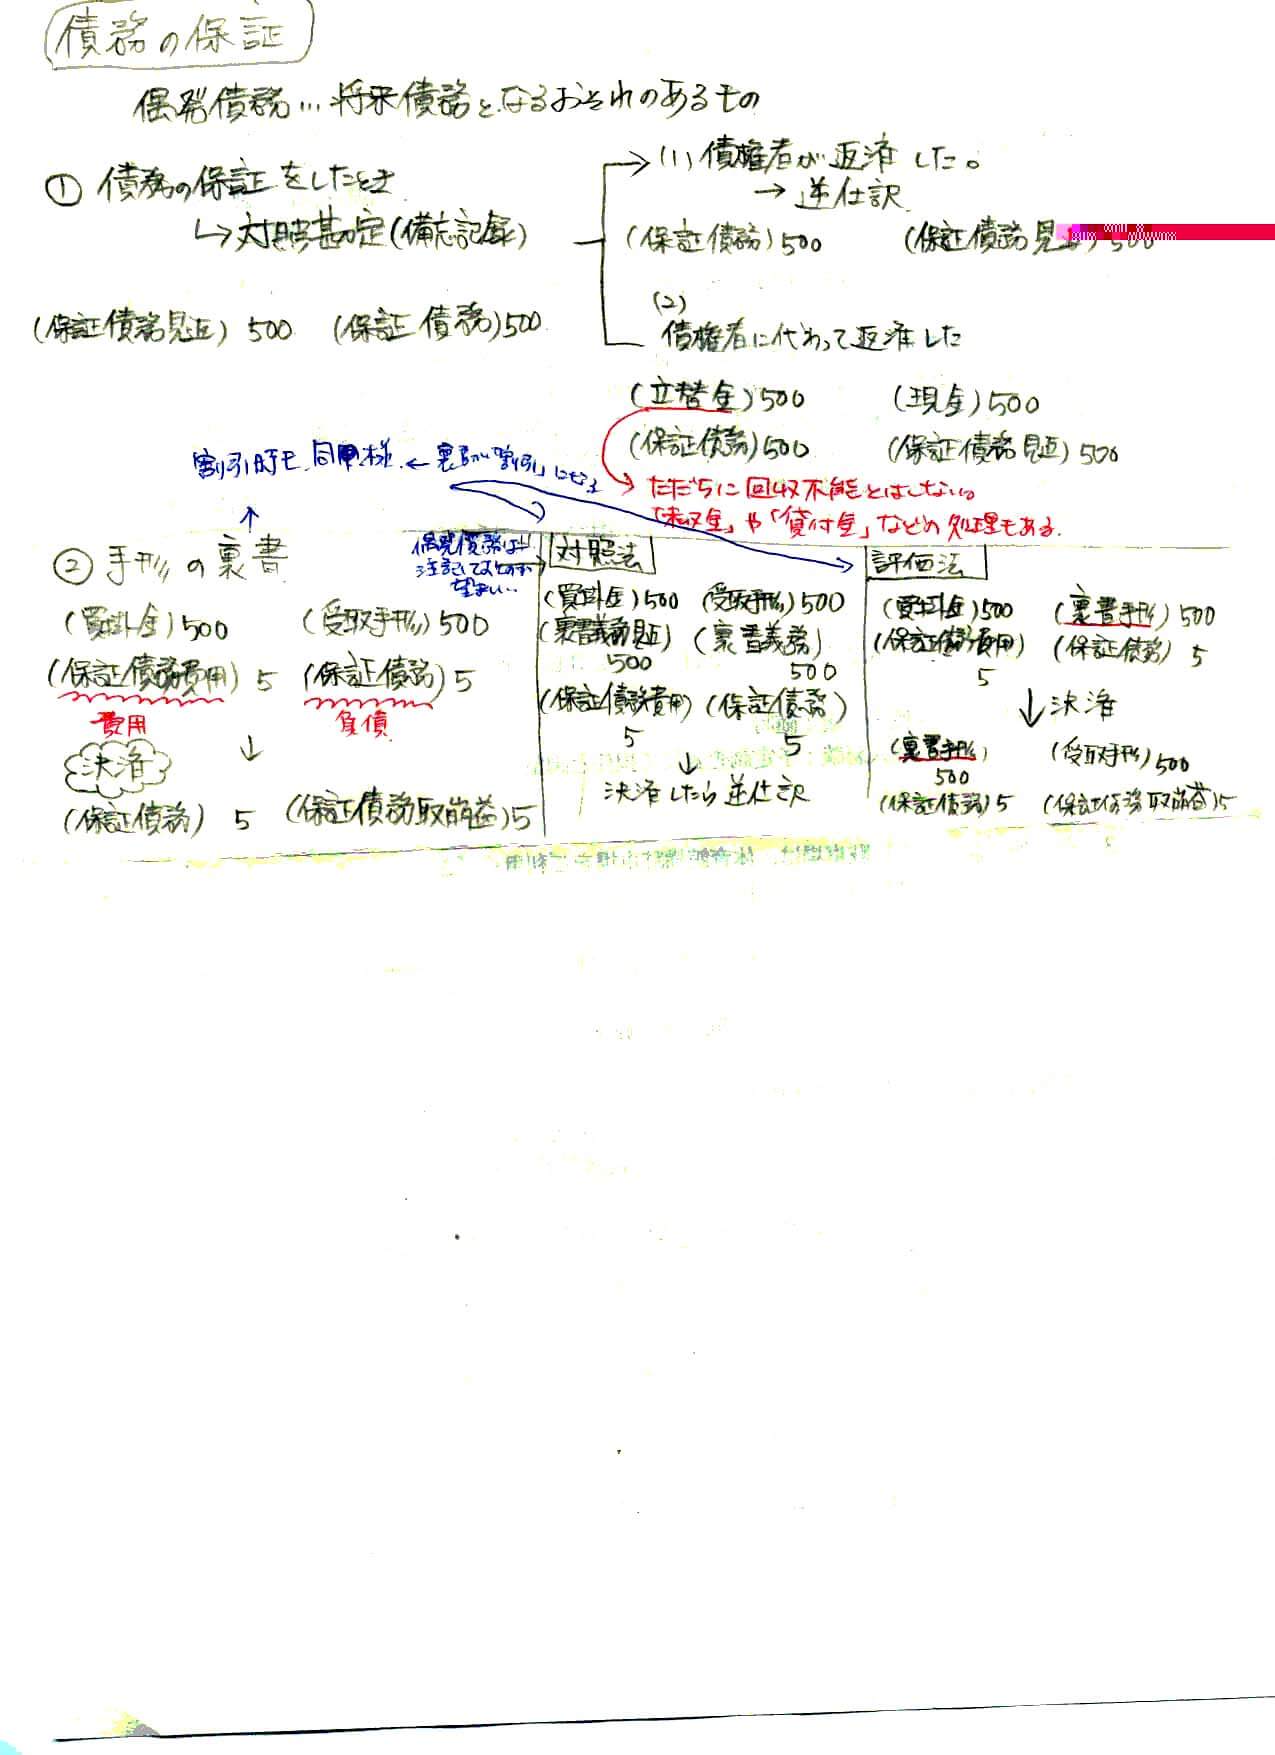 債務の保証
偶発債務…将来債務となるおそれのあるもの
① 債務の保証をしたとき
↳対照勘定(備忘記録)
(保証債務見返) 500 (保証債務)500
→(1)債権者が返済した。
→逆仕訳
(保証債務)500 (保証債務見返)500
(2)
債権者に代わって返済した
(立替金)500 (現金)500
(保証債務)500 (保証債務見返)500
ただちに回収不能とはしない。
「未収金」や「貸付金」などの処理もある.
割引時も同様 ← 裏書が「割引」になる
↑
② 手形の裏書
(買掛金)500 (受取手形)500
(保証債務費用) 5 (保証債務) 5
費用 負債
↓
決済
(保証債務) 5 (保証債務取崩益)5
偶発債務は
注記しておくのが
望ましい…
対照法
(買掛金)500 (受取手形)500
(裏書義務見返) (裏書義務)
500 500
(保証債務費用) (保証債務)
5 5
↓
決済したら逆仕訳
評価法
(買掛金)500 (裏書手形)500
(保証債務費用) (保証債務) 5
5
↓決済
(裏書手形) (受取手形)500
500
(保証債務)5 (保証債務取崩益)5